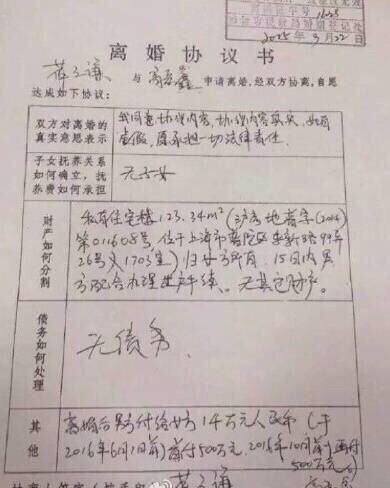 2015年9月22日
离婚协议书
薛之谦 与 高磊鑫 申请离婚,经双方协商,自愿
达成如下协议:
双方对离婚的
真实意思表示
我同意协议内容,协议内容真实,如有
虚假,愿承担一切法律责任.
子女抚养关系
如何确立,抚
养费如何承担
无子女
财产如何分割
私有住宅楼123.34m²(沪房地普字(2014)
第011608号,位于上海市普陀区
26号 1703室)归女方所有,15日内男
方配合办理过户手续。无其它财产。
债务如何处理
无债务.
其他
离婚后男方付给女方1千万元人民币(于
2016年6月1日前)首付500万元.2016年10月前再付
500万元